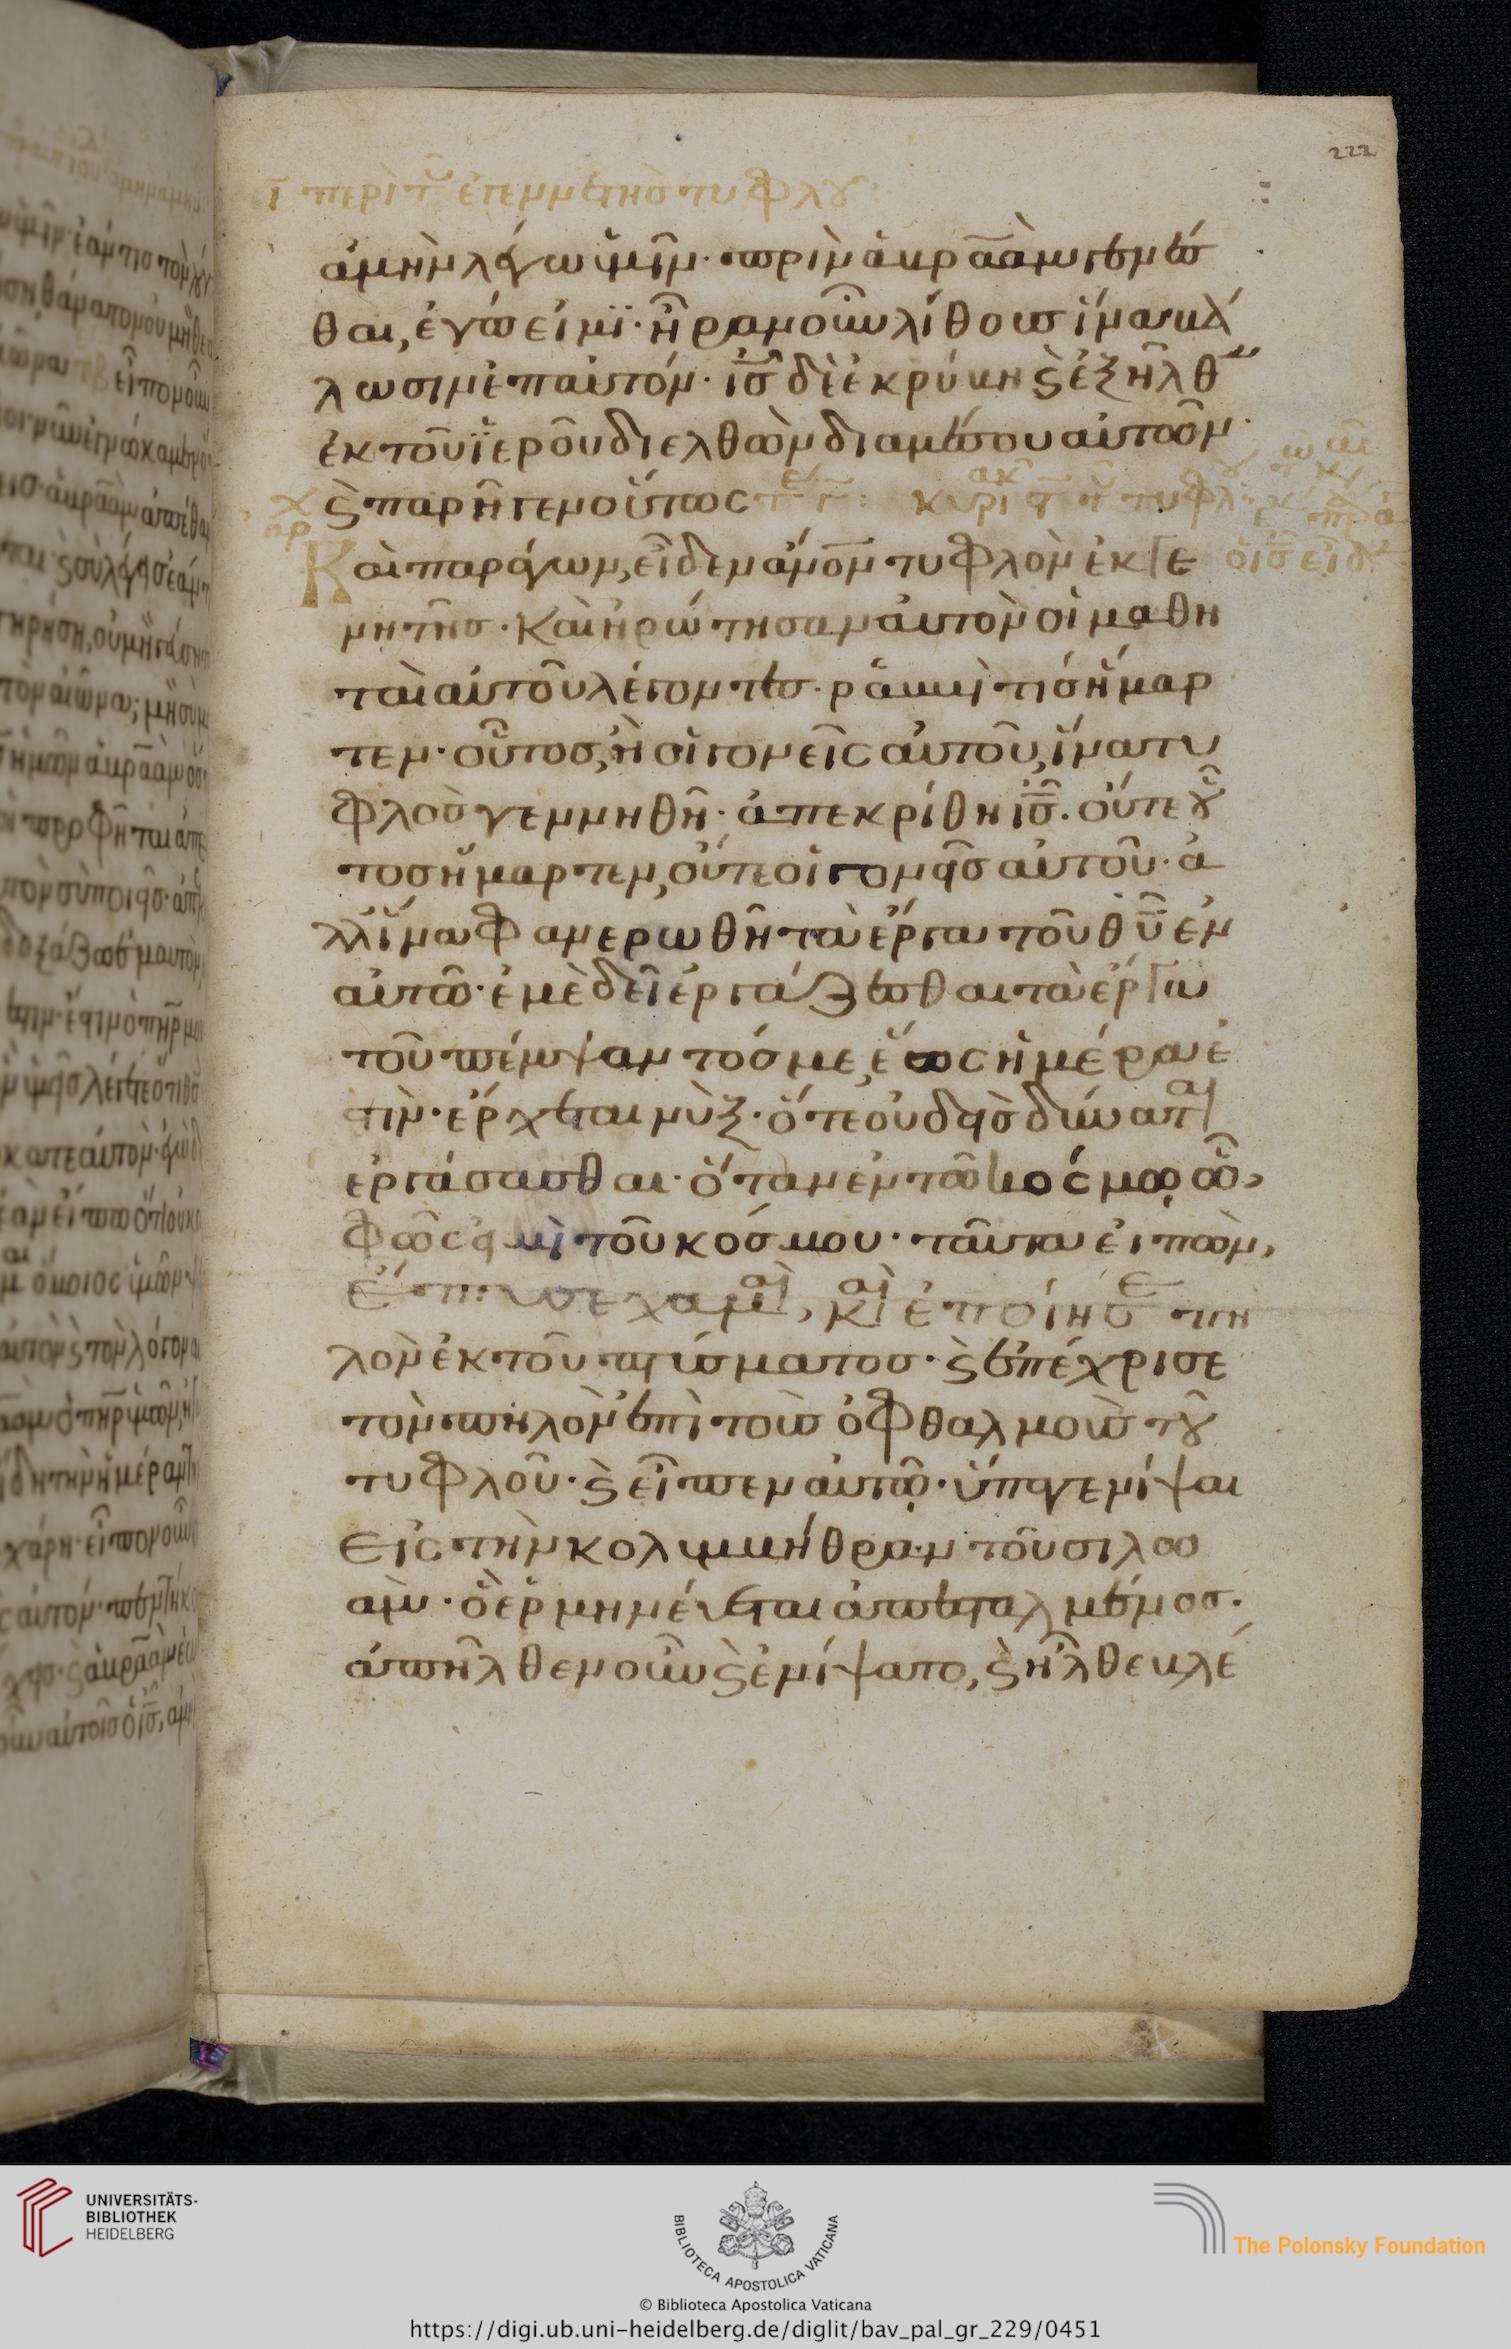 222
ι περὶ τοῦ ἐκ γεννετῆς τυφλοῦ:
ἀμὴν λέγω ὑμῖν· πρὶν ἀβραὰμ γενέσ
θαι, ἐγώ εἰμϊ· ἦραν οὖν λίθους ἵνα βά
λωσιν ἐπ αὐτόν· ἰς δὲ ἐκρύβη ϛ ἐξῆλθεν
ἐκ τοῦ ϊεροῦ διελθὼν διαμέσου αὐτῶν·
ϛ παρῆγεν οὕτως
Καὶ παράγων, εἶδεν ἄνον τυφλὸν ἐκ γε
νητῆς· Καὶ ἠρώτησαν αὐτὸν οἱ μαθη
ταὶ αὐτοῦ λέγοντες· ῥαββὶ τίς ἥμαρ
τεν· οὗτος, ἢ οἱ γονεῖς αὐτοῦ, ἵνα τυ
φλὸς γεννηθῆ· ἀπεκρίθη ἰς· οὔτε οὗ
τος ἥμαρτεν, οὔτε οἱ γονεῖς αὐτοῦ· ἀ
λλ ἵνα φανερωθῆ τὰ ἔργα τοῦ θυ ἐν
αὐτῶ· ἐμὲ δεῖ ἐργάζεσθαι τὰ ἔργα
τοῦ πέμψαντός με, ἕως ἡμέρα ἐ
στὶν· ἔρχεται νὺξ· ὅτε οὐδεὶς δύναται
ἐργάσασθαι· ὅταν ἐν τῶ κόσμῳ ὦ,
φῶς εἰμὶ τοῦ κόσμου· ταῦτα εἰπὼν,
ἔπτυσε χαμαὶ, καὶ ἐποίησε πη
λὸν ἐκ τοῦ πτύσματος· ϛ ἐπέχρισε
τὸν πηλὸν ἐπὶ τοὺς ὀφθαλμοὺς τοῦ
τυφλοῦ· ϛ εἶπεν αὐτῷ· ὕπαγε νίψαι
εἰς τὴν κολυμβήθραν τοῦ σιλω
αμ· ὃ ἑρμηνεύεται ἀπεσταλμένος·
ἀπῆλθεν οὖν ϛ ἐνίψατο, ϛ ἦλθε βλέ
UNIVERSITÄTS-
BIBLIOTHEK
HEIDELBERG
BIBLIOTECA APOSTOLICA VATICANA
The Polonsky Foundation
© Biblioteca Apostolica Vaticana
https://digi.ub.uni-heidelberg.de/diglit/bav_pal_gr_229/0451